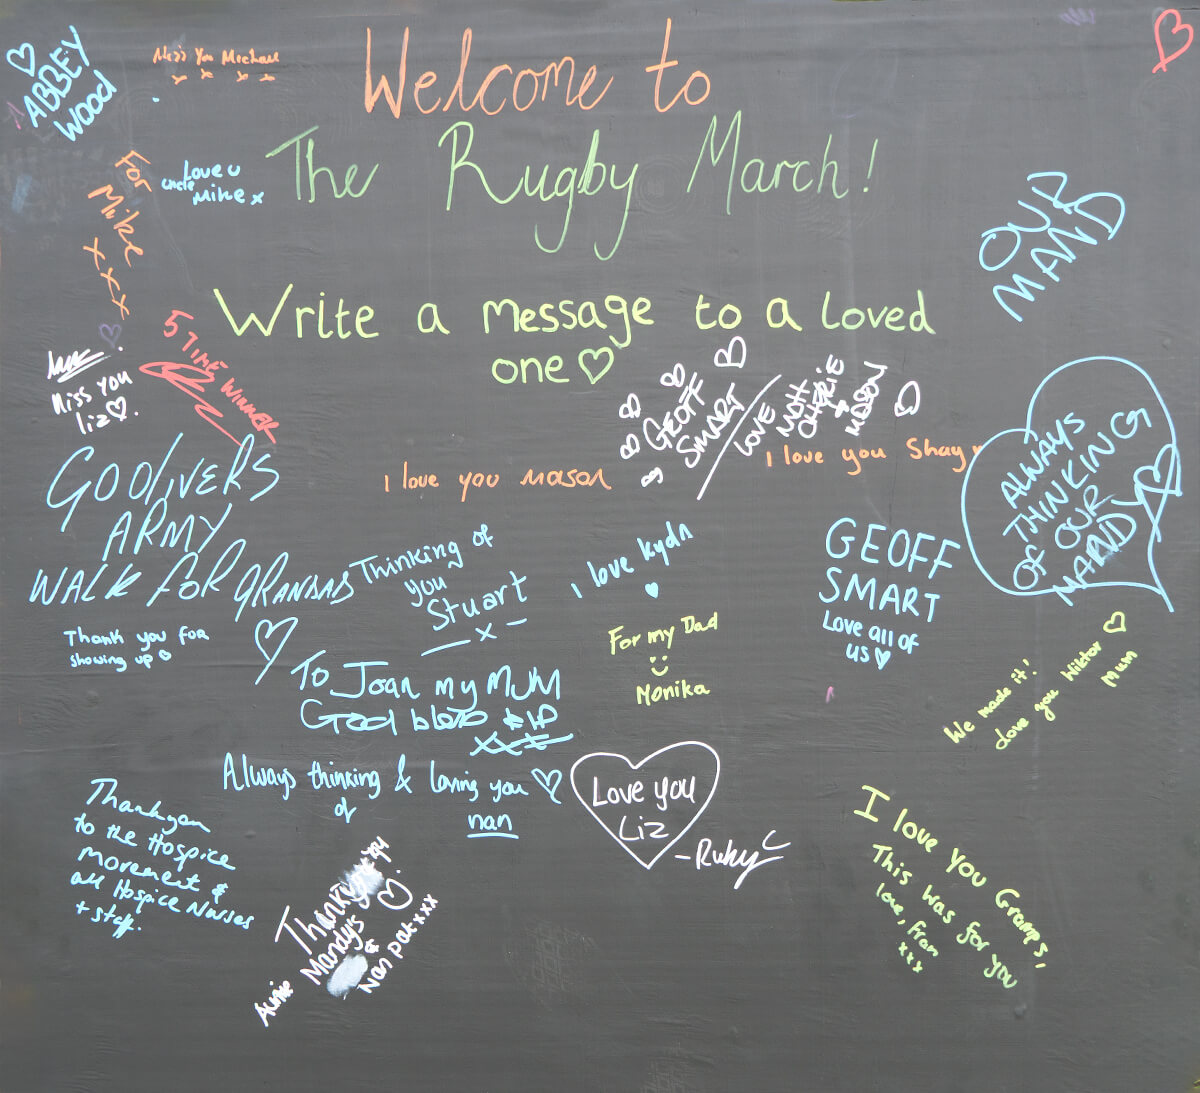 ABBEY
WOOD
Miss You Michael
x x x x
Welcome to
The Rugby March!
For
Mike
xxx
Love u
uncle
Mike x
OUR
MAND
Write a message to a loved
one
5 TIME WINNER
Miss you
Liz
GEOFF
SMART
LOVE
MATT
CHERIE
+
MASON
I love you Mason
I love you Shay
ALWAYS
THINKING
OF OUR
MANDY
GO OLIVERS
ARMY
WALK FOR GRANDADS
Thank you for
showing up
Thinking of
you
Stuart
x
I love kydn
GEOFF
SMART
Love all of
us
For my Dad
Monika
We made it!
Love you Wiktor
Mum
To Joan my MUM
God bless
xxx
Always thinking & loving you
of nan
Love you
Liz
-Ruby C
Thankyou
to the Hospice
Movement &
all Hospice Nurses
+ staff.
Thankyou
Auntie Mandys
&
Nan pat xxx
I love you Gramps,
This was for you
love, Fran
xxx